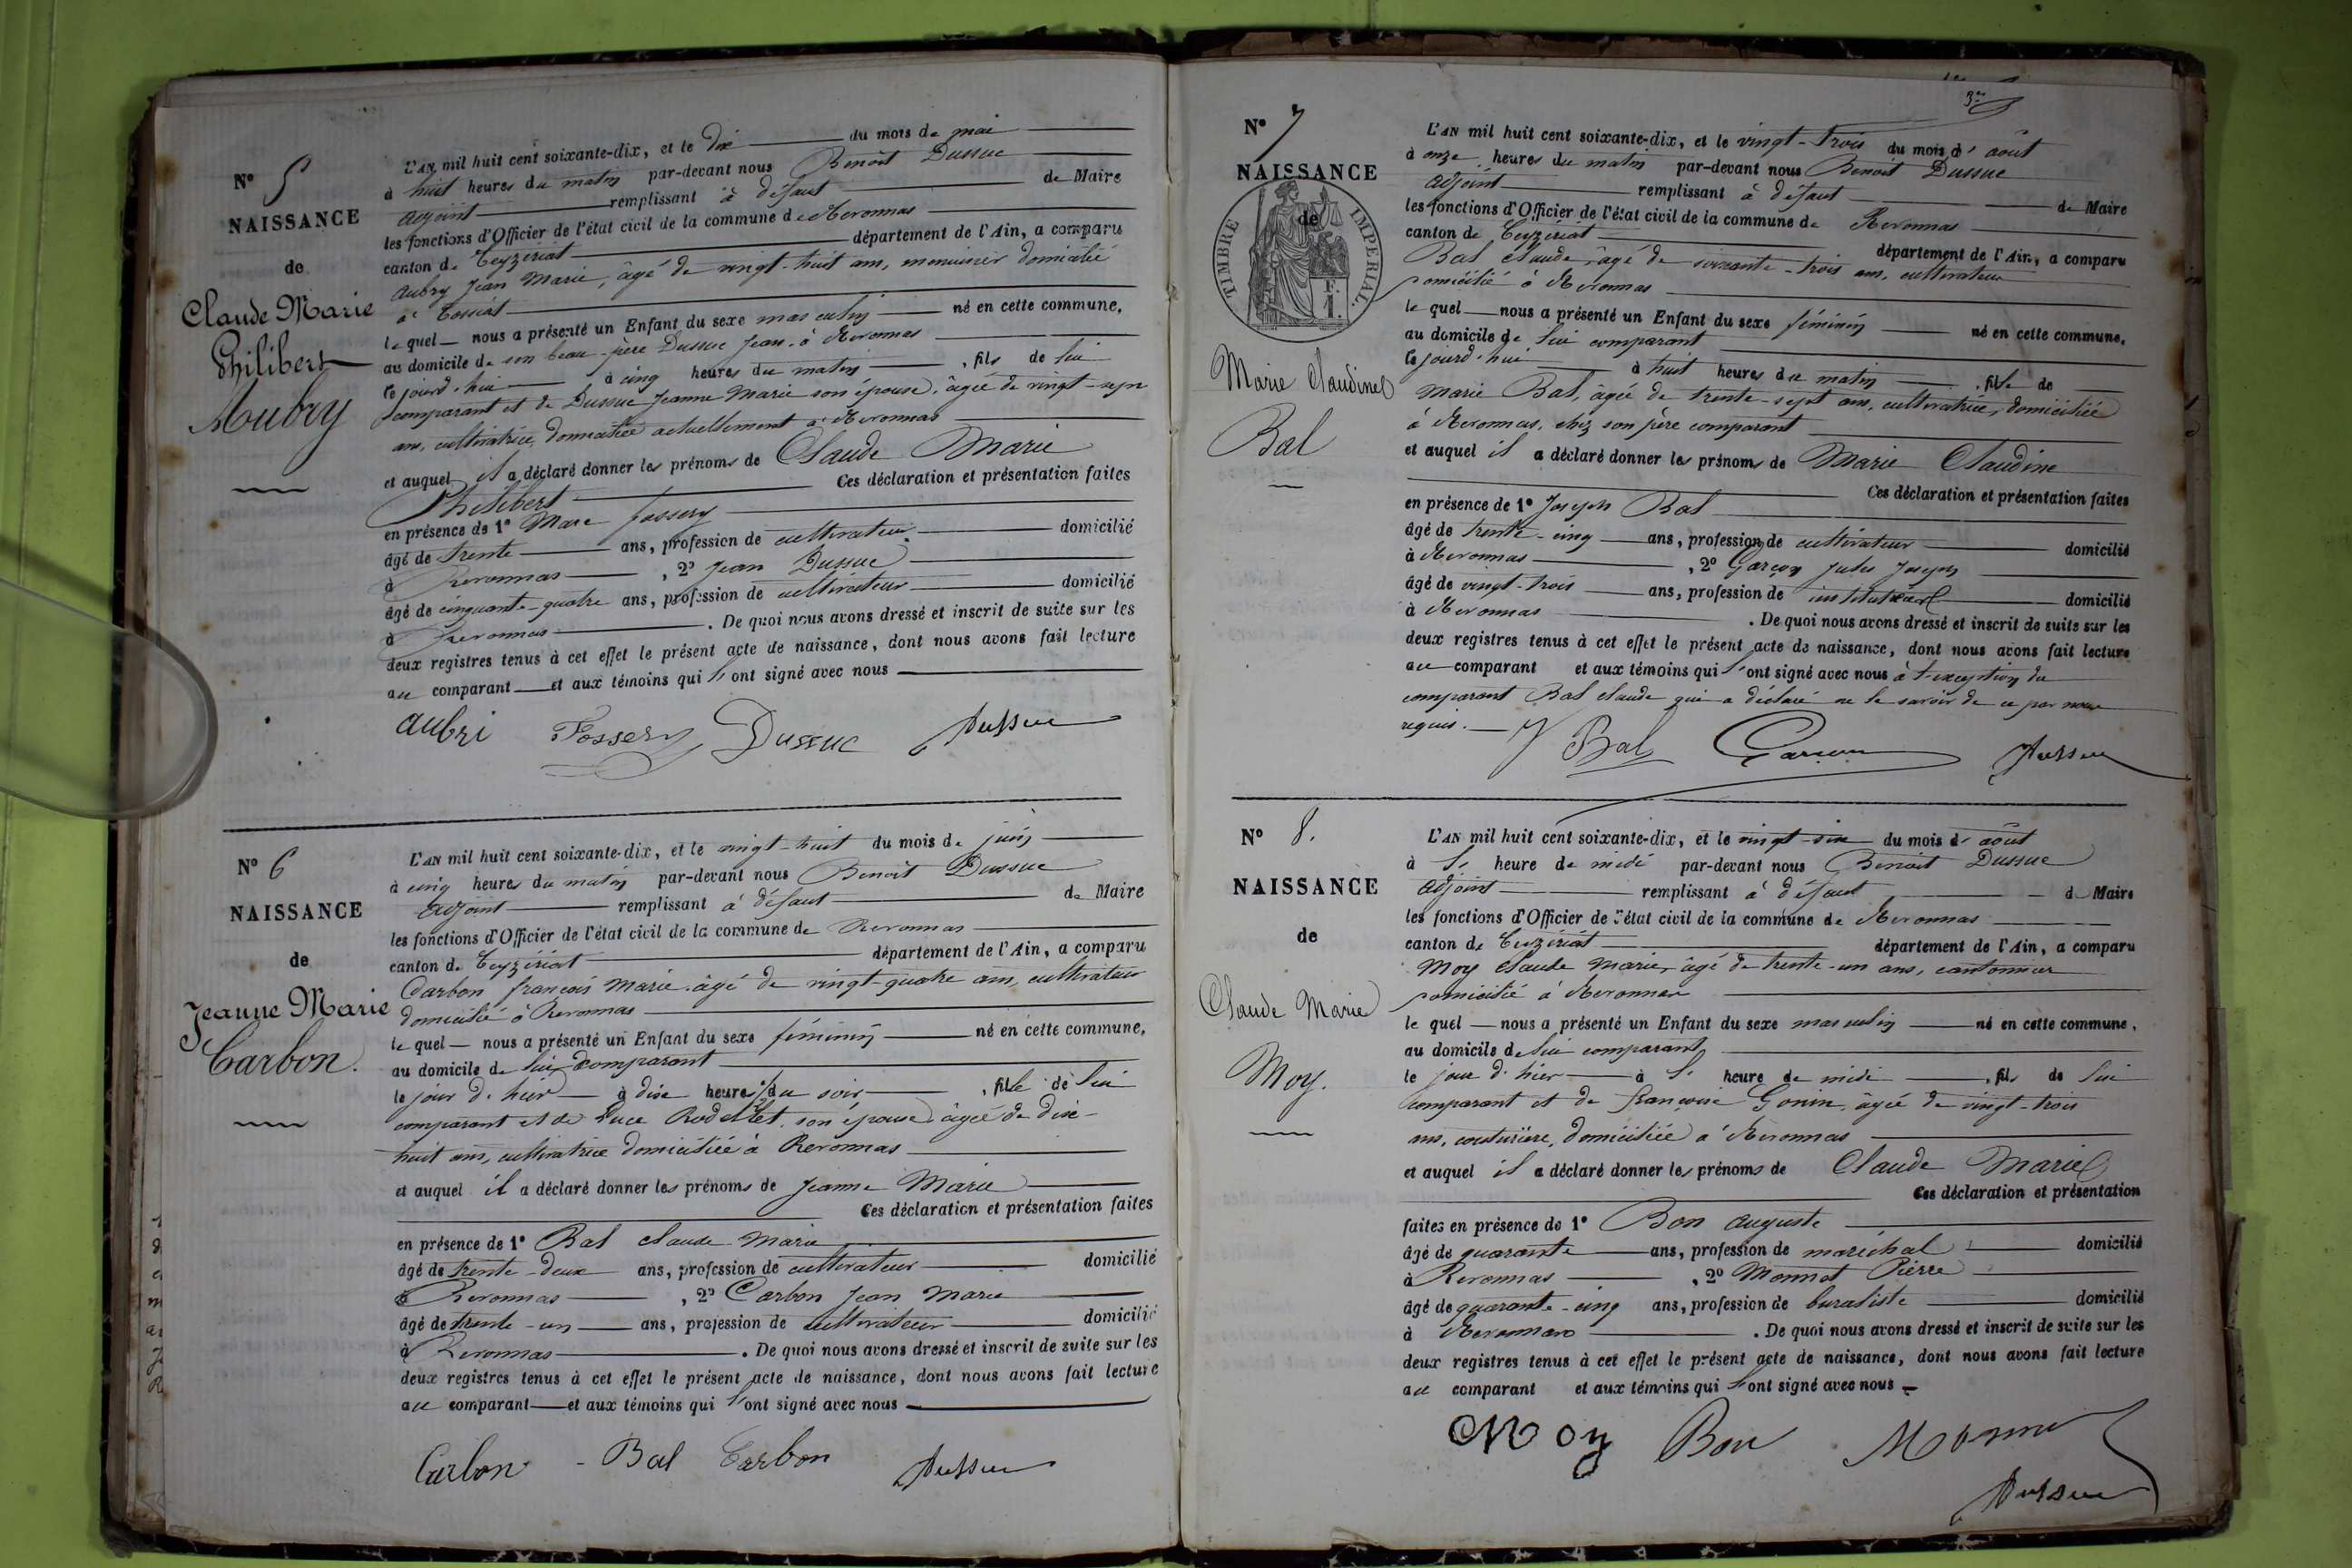 N° 5
NAISSANCE
de
Claude Marie
Philibert
Aubry
L'AN mil huit cent soixante-dix, et le dix du mois de mai
à huit heures du matin par-devant nous Benoît Dussuc
adjoint remplissant à défaut de Maire
les fonctions d'Officier de l'état civil de la commune de Revonnas
canton de Ceyzériat département de l'Ain, a comparu
Aubry Jean Marie, âgé de vingt-huit ans, menuisier domicilié
à Tossiat
le quel nous a présenté un Enfant du sexe masculin né en cette commune,
au domicile de son beau-père Dussuc Jean, à Revonnas
ce jourd'hui à cinq heures du matin, fils de lui
comparant et de Dussuc Jeanne Marie son épouse, âgée de vingt-sept
ans, cultivatrice, domiciliée actuellement à Revonnas
et auquel il a déclaré donner les prénoms de Claude Marie
Philibert Ces déclaration et présentation faites
en présence de 1° Marc Fossery
âgé de trente ans, profession de cultivateur domicilié
à Revonnas, 2° Jean Dussuc
âgé de cinquante-quatre ans, profession de cultivateur domicilié
à Revonnas. De quoi nous avons dressé et inscrit de suite sur les
deux registres tenus à cet effet le présent acte de naissance, dont nous avons fait lecture
au comparant et aux témoins qui l'ont signé avec nous
aubri Fossery Dussuc Dussuc
N° 6
NAISSANCE
de
Jeanne Marie
Carbon.
L'AN mil huit cent soixante-dix, et le vingt-huit du mois de juin
à cinq heures du matin par-devant nous Benoît Dussuc
adjoint remplissant à défaut de Maire
les fonctions d'Officier de l'état civil de la commune de Revonnas
canton de Ceyzériat département de l'Ain, a comparu
Carbon François Marie âgé de vingt-quatre ans, cultivateur
domicilié à Revonnas
le quel nous a présenté un Enfant du sexe féminin né en cette commune,
au domicile de lui comparant
le jour d'hier à dix heures du soir, fille de lui
comparant et de Luce Rodet, son épouse âgée de dix-
huit ans, cultivatrice domiciliée à Revonnas
et auquel il a déclaré donner les prénoms de Jeanne Marie
Ces déclaration et présentation faites
en présence de 1° Bal Claude Marie
âgé de trente-deux ans, profession de cultivateur domicilié
à Revonnas, 2° Carbon Jean Marie
âgé de trente-un ans, profession de cultivateur domicilié
à Revonnas. De quoi nous avons dressé et inscrit de suite sur les
deux registres tenus à cet effet le présent acte de naissance, dont nous avons fait lecture
au comparant et aux témoins qui l'ont signé avec nous
Carbon Bal Carbon Dussuc
N° 7
NAISSANCE
de
TIMBRE IMPERIAL.
F. 1.
Marie Claudine
Bal
L'AN mil huit cent soixante-dix, et le vingt-trois du mois d'août
à onze heures du matin par-devant nous Benoît Dussuc
adjoint remplissant à défaut de Maire
les fonctions d'Officier de l'état civil de la commune de Revonnas
canton de Ceyzériat département de l'Ain, a comparu
Bal Claude, âgé de soixante-trois ans, cultivateur
domicilié à Revonnas
le quel nous a présenté un Enfant du sexe féminin né en cette commune,
au domicile de lui comparant
ce jourd'hui à huit heures du matin, fille de
Marie Bal, âgée de trente-sept ans, cultivatrice, domiciliée
à Revonnas, chez son père comparant
et auquel il a déclaré donner les prénoms de Marie Claudine
Ces déclaration et présentation faites
en présence de 1° Joseph Bal
âgé de trente-cinq ans, profession de cultivateur domicilié
à Revonnas, 2° Garçon Jules Joseph
âgé de vingt-trois ans, profession de instituteur domicilié
à Revonnas. De quoi nous avons dressé et inscrit de suite sur les
deux registres tenus à cet effet le présent acte de naissance, dont nous avons fait lecture
au comparant et aux témoins qui l'ont signé avec nous à l'exception du
comparant Bal Claude qui a déclaré ne le savoir de ce par nous
requis. J Bal Garçon Dussuc
N° 8.
NAISSANCE
de
Claude Marie
Moy.
L'AN mil huit cent soixante-dix, et le vingt-six du mois d'août
à l' heure de midi par-devant nous Benoît Dussuc
adjoint remplissant à défaut de Maire
les fonctions d'Officier de l'état civil de la commune de Revonnas
canton de Ceyzériat département de l'Ain, a comparu
Moy Claude Marie, âgé de trente-un ans, cantonnier
domicilié à Revonnas
le quel nous a présenté un Enfant du sexe masculin né en cette commune,
au domicile de lui comparant,
le jour d'hier à l' heure de midi, fils de lui
comparant et de Françoise Gonin, âgée de vingt-trois
ans, couturière, domiciliée à Revonnas
et auquel il a déclaré donner les prénoms de Claude Marie
Ces déclaration et présentation
faites en présence de 1° Bon Auguste
âgé de quarante ans, profession de maréchal domicilié
à Revonnas, 2° Monnet Pierre
âgé de quarante-cinq ans, profession de buraliste domicilié
à Revonnas. De quoi nous avons dressé et inscrit de suite sur les
deux registres tenus à cet effet le présent acte de naissance, dont nous avons fait lecture
au comparant et aux témoins qui l'ont signé avec nous
Moy Bon Monnet
Dussuc